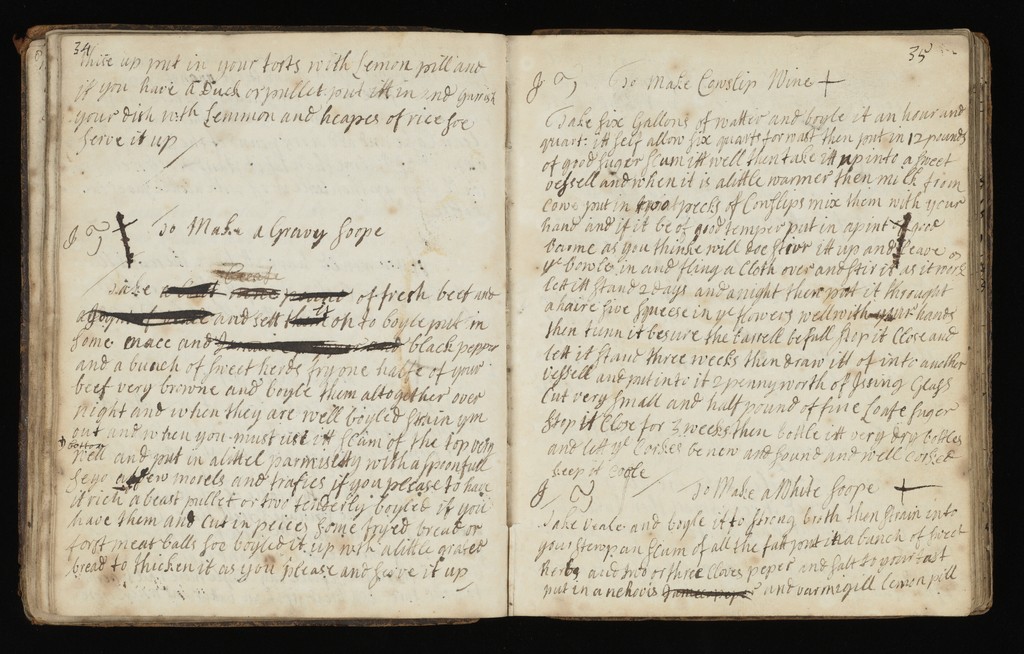 34
thite up put in your torts with Lemon pill and
if you have a Duck or pullet put itt in and Garnish
your dish with Lemmon and heapes of rice soe
serve it up
To Make a Gravy Soope
Take of fresh beef and
and sett on to boyle put in
some mace and black pepper
and a bunch of sweet herbs fry one halfe of your
beef very browne and boyle them altogether over
night and when they are well boyled strain ym
out and when you must use itt scum of the top very
well and put in a littel parmisetty with a spoonfull
few morels and trafies if you please to have
it rich a beast pullet or two tenderly boyled if you
have them and cut in peices some fryed bread or
forst meat balls soe boyled it up with a little grated
bread to thicken it as you please and serve it up
35
To Make Cowslip Wine
Take six Gallons of watter and boyle it an hour and
quart: itt self allow six quarts for wast then put in 12 pounds
of good suger scum itt well then take itt up into a sweet
vessell and when it is a little warmer then milk from
cowe put in two pecks of Cowslips mix them with your
hand and if it be of good temper put in a pint of good
barme as you thinke will doe stirr itt up and leave
ye bowle in and fling a Cloth over and stir it as it works
lett itt stand 2 days and a night then put it throught
a haire sive squeese in ye flowers well with your hands
then tunn it be sure the barrell be full stop it Close and
lett it stand three weeks then draw itt of into another
vessell and put into it 2 penny worth of Jsing Glass
Cut very small and half pound of fine Loafe suger
stop it Close for 3 weeks then bottle itt very dry bottles
and lett ye Corkes be new and sound and well Corked
keep it Coole
To Make a White Soope
Take veale and boyle it to strong broth then strain into
your stewpan scum of all the fatt put in a bunch of sweet
herbs add two or three Cloves peper and salt to your tast
put in anchovis and varmigill lemon pill